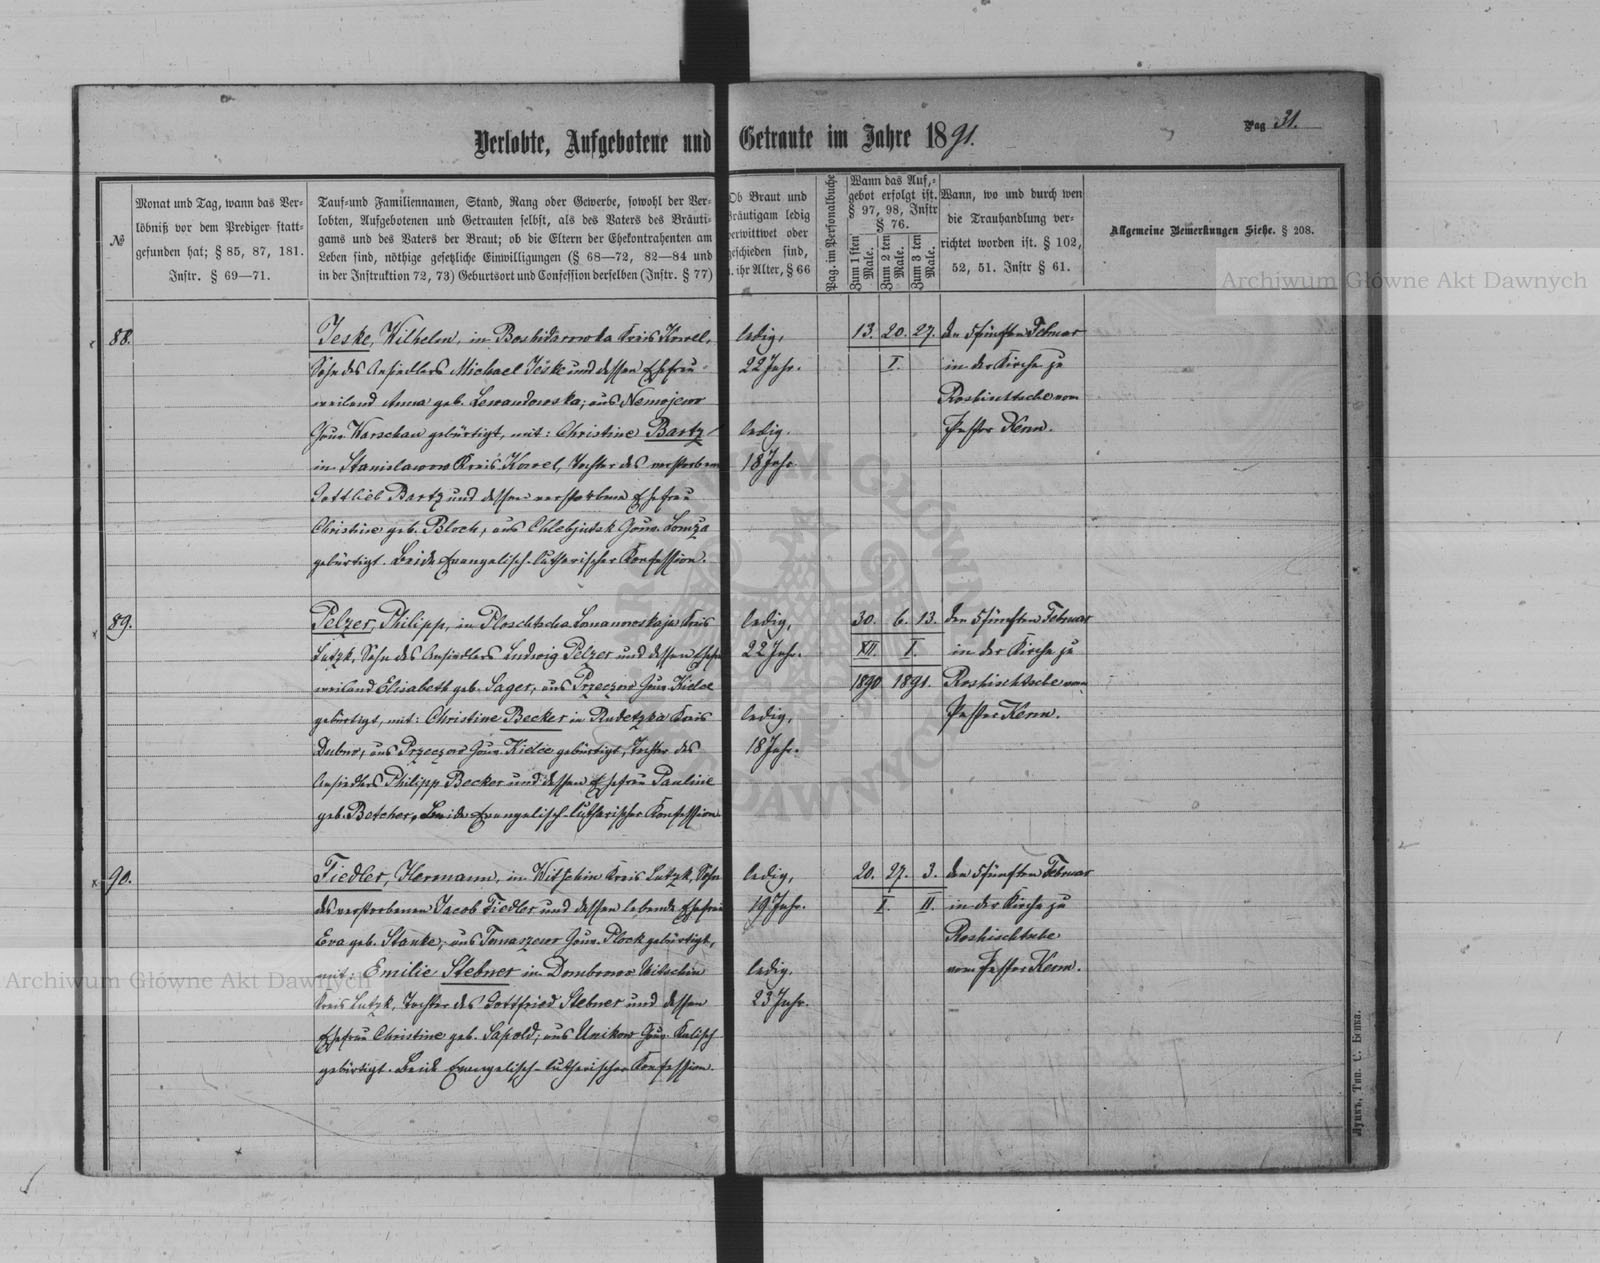 Verlobte, Aufgebotene und Getraute im Jahre 1891.
Pag 31.
№
Monat und Tag, wann das Ver-
löbniß vor dem Prediger statt-
gefunden hat; § 85, 87, 181.
Instr. § 69—71.
Tauf- und Familiennamen, Stand, Rang oder Gewerbe, sowohl der Ver-
lobten, Aufgebotenen und Getrauten selbst, als des Vaters des Bräuti-
gams und des Vaters der Braut; ob die Eltern der Ehekontrahenten am
Leben sind, nöthige gesetzliche Einwilligungen (§ 68—72, 82—84 und
in der Instruktion 72, 73) Geburtsort und Confession derselben (Instr. § 77)
Ob Braut und
Bräutigam ledig
verwittwet oder
geschieden sind,
u. ihr Alter, § 66
Pag. im Personalbuche
Wann das Auf-
gebot erfolgt ist.
§ 97, 98, Instr
§ 76.
Zum 1sten Male.
Zum 2 ten Male.
Zum 3 ten Male.
Wann, wo und durch wen
die Trauhandlung ver-
richtet worden ist. § 102,
52, 51. Instr § 61.
Allgemeine Bemerkungen Siehe. § 208.
88.
Jeske, Wilhelm, in Boshidarowka Kreis Kowel,
Sohn des Ansiedlers Michael Jeske und dessen Ehefrau
weiland Anna geb. Lewandowska; aus Nemojew
Gouv. Warschau gebürtigt, mit: Christine Bartz
in Stanislawow Kreis Kowel, Tochter des verstorbenen
Gottlieb Bartz und dessen verstorbene Ehefrau
Christine geb. Bloch, aus Chlebjudsk Gouv. Lomza
gebürtigt. Beide Evangelisch-Lutherischer Konfession.
ledig,
22 Jahr.
ledig.
18 Jahr
13. 20. 27.
I.
den 5 fünften Februar
in der Kirche zu
Roshischtsche vom
Pastor Kern.
89.
Pelzer, Philipp, in Ploschtscha Lomanowskaja Kreis
Lutzk, Sohn des Ansiedlers Ludwig Pelzer und dessen Ehefrau
weiland Elisabeth geb. Sager, aus Przeczow Gouv. Kielce
gebürtigt, mit: Christine Becker in Rudetzka Kreis
Dubno, aus Przeczow Gouv. Kielce gebürtigt, Tochter des
Ansiedlers Philipp Becker und dessen Ehefrau Pauline
geb. Betcher. Beide Evangelisch-Lutherischer Konfession
ledig,
22 Jahr.
ledig,
18 Jahr.
30. 6. 13.
XII. I.
1890 1891.
den 5 fünften Februar
in der Kirche zu
Roshischtsche vom
Pastor Kern.
90.
Fiedler, Hermann, in Witschin Kreis Lutzk, Sohn
des verstorbenen Jacob Fiedler und dessen lebende Ehefrau
Eva geb. Stanke, aus Tomaszew Gouv. Plock gebürtigt,
mit: Emilie Stebner in Dombrowo Witschin
Kreis Lutzk, Tochter des Gottfried Stebner und dessen
Ehefrau Christine geb. Sapold, aus Unikow Gouv. Kalisch
gebürtigt. Beide Evangelisch-Lutherischer Konfession.
ledig,
19 Jahr.
ledig.
23 Jahr.
20. 27. 3.
I. II.
den 5 fünften Februar
in der Kirche zu
Roshischtsche
vom Pastor Kern.
Луцкъ, Тип. С. Бонка.
Archiwum Główne Akt Dawnych
Archiwum Główne Akt Dawnych